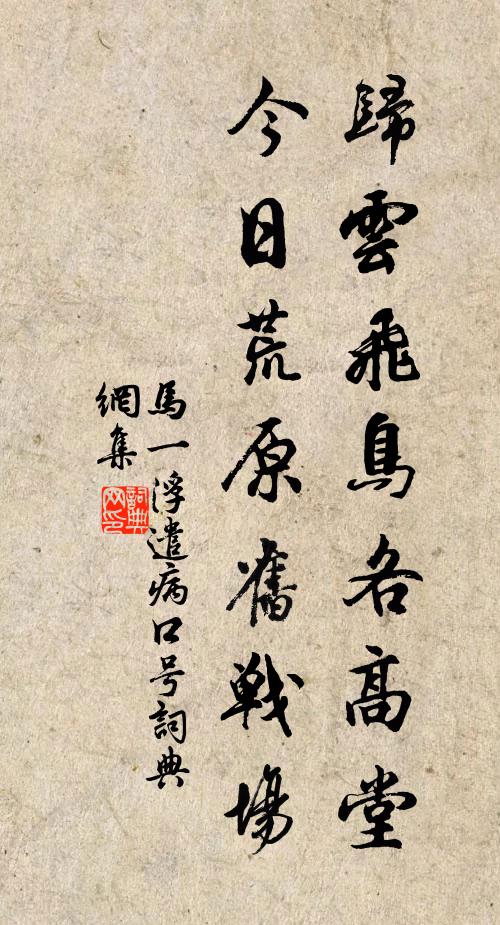 歸雲飛鳥各高堂
今日荒原舊戰場
馬一浮遣病口号詞典
網集
詞典网印